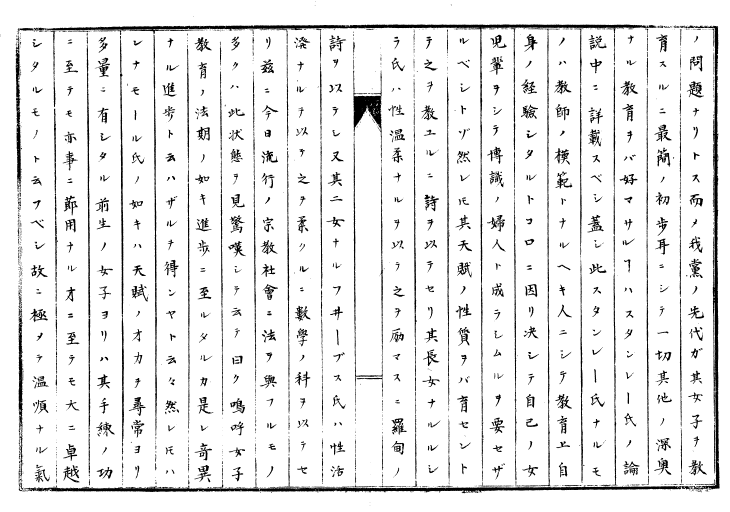 ノ問題ナリトス而メ我黨ノ先代ガ其女子ヲ教
育スルニ最簡ノ初歩耳ニシテ一切其他ノ深奥
ナル教育ヲバ好マサルヿハスタンレー氏ノ論
説中ニ詳載スベシ蓋シ此スタンレー氏ナルモ
ノハ教師ノ模範トナルヘキ人ニシテ教育上自
身ノ經驗シタルトコロニ因リ决シテ自己ノ女
児輩ヲシテ博識ノ婦人ト成ラシムルヲ要セザ
ルベシトゾ然レ𪜈其天賦ノ性質ヲバ育セント
テ之ヲ教ユルニ詩ヲ以テセリ其長女ナルルシ
ラ氏ハ性温柔ナルヲ以テ之ヲ励マスニ羅甸ノ
詩ヲ以テシ又其二女ナルフ井ーブス氏ハ性活
溌ナルヲ以テ之ヲ柔クルニ數學ノ科ヲ以テセ
リ茲ニ今日流行ノ宗教社會ニ法ヲ與フルモノ
多クハ此状態ヲ見驚嘆シテ云テ曰ク嗚呼女子
教育ノ法期ノ如キ進歩ニ至ルタルカ是レ奇異
ナル進歩ト云ハザルヲ得ンヤト云々然レ𪜈ハ
レナモール氏ノ如キハ天賦ノオカヲ尋常ヨリ
多量ニ有シタル前生ノ女子ヨリハ其手練ノ功
ニ至テモ亦事ニ節用ナル才ニ至テモ大ニ卓越
シタルモノト云フベシ故ニ極メテ温順ナル氣